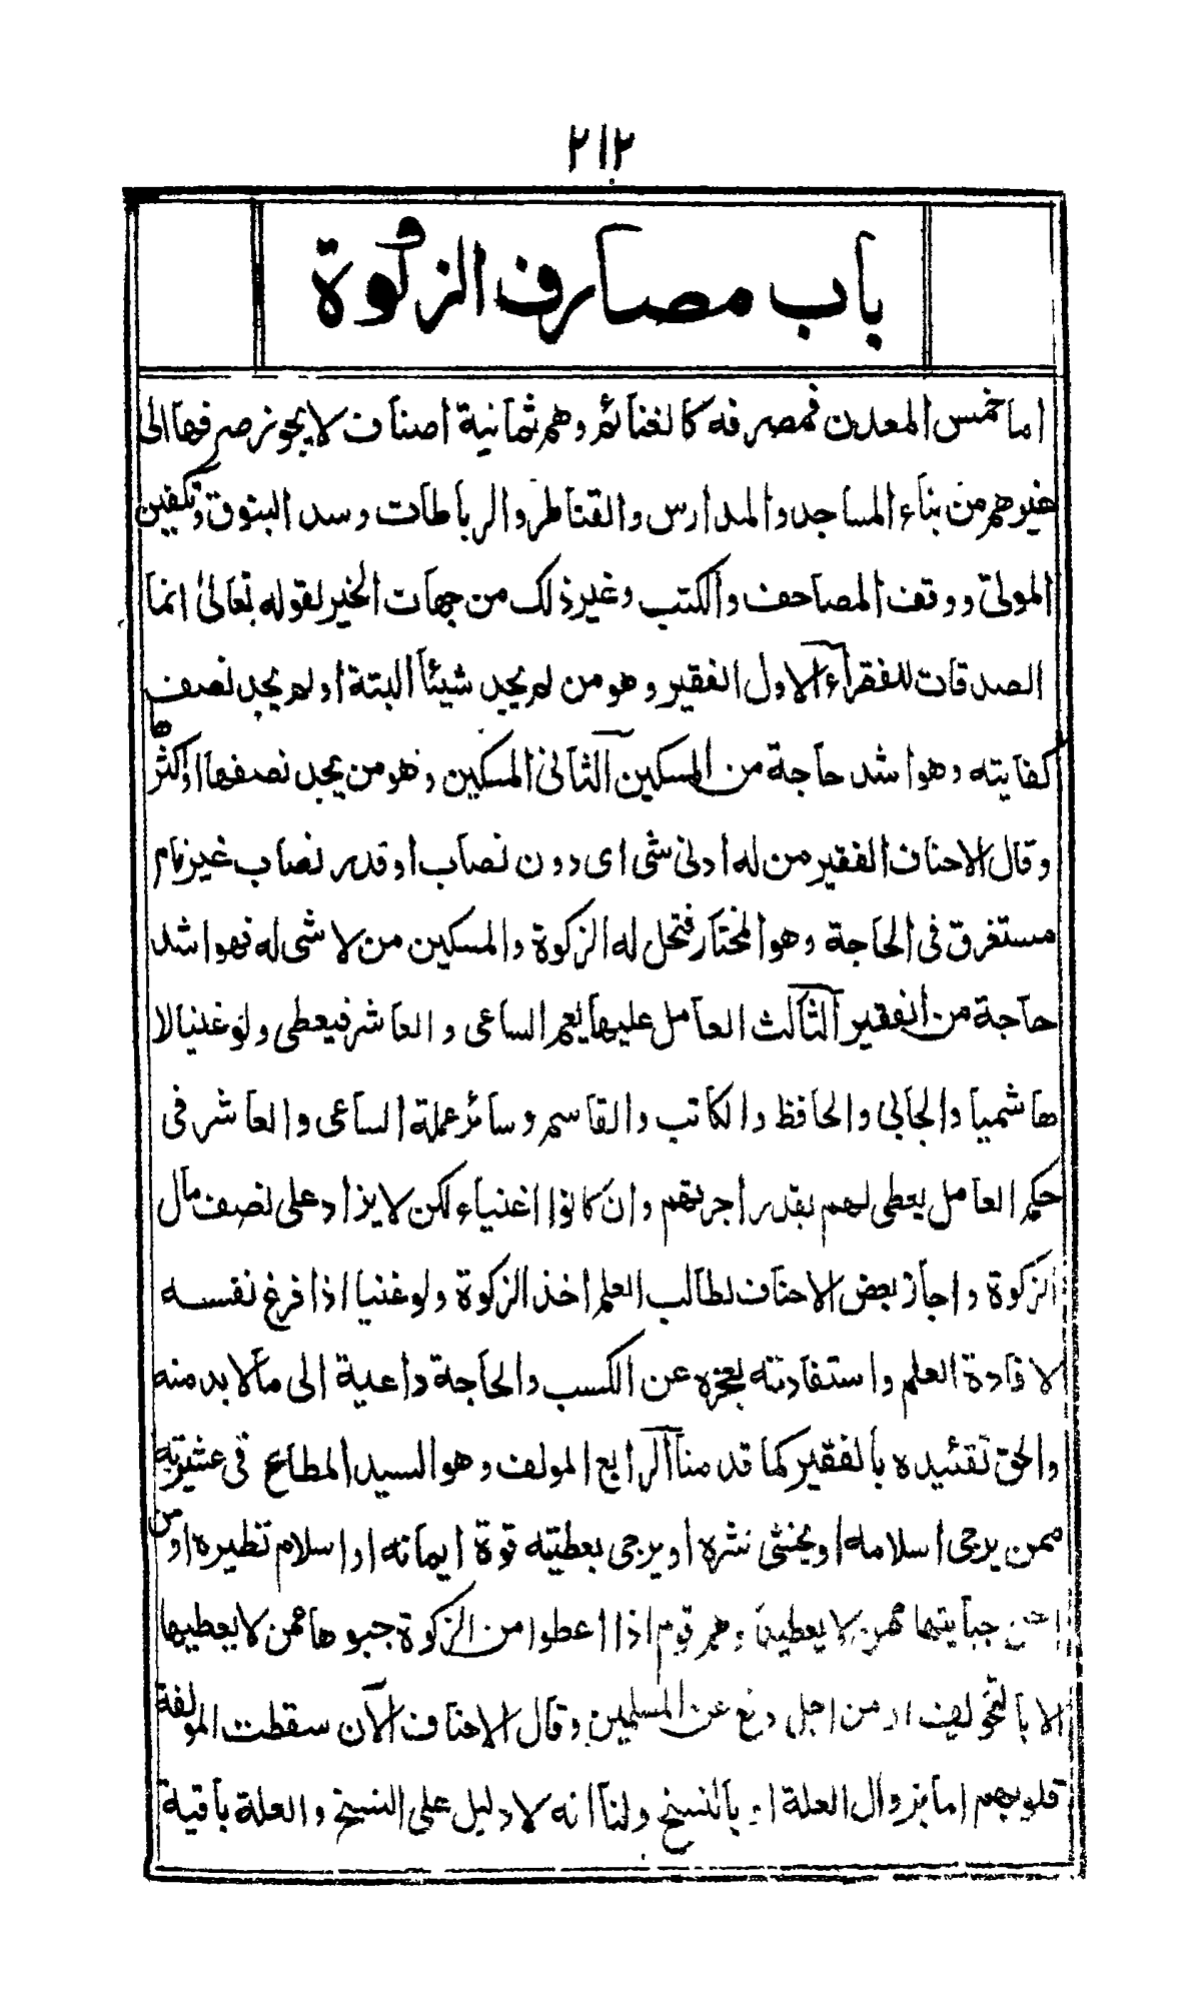 ٢١٢
باب مصارف الزكوة
اما خمس المعدن فمصرفه كالغنائم وهم ثمانية اصناف لا يجوز صرفها الى
غيرهم من بناء المساجد والمدارس والقناطر والرباطات وسد البثوق وتكفين
الموتى ووقف المصاحف والكتب وغير ذلك من جهات الخير لقوله تعالىٰ انما
الصدقات للفقراء الاول الفقير وهو من لم يجد شيئا البتة او لم يجد نصف
كفايته وهو اشد حاجة من المسكين الثانى المسكين وهو من يجد نصفها او اكثرها
وقال الاحناف الفقير من له ادنى شى اى دون نصاب او قدر نصاب غير نام
مستغرق فى الحاجة وهو المختار فتحل له الزكوة والمسكين من لا شى له فهو اشد
حاجة من الفقير الثالث العامل عليها يعم الساعى والعاشر فيعطى ولو غنيا لا
هاشميا والجابى والحافظ والكاتب والقاسم وسائر عملة الساعى والعاشر فى
حكم العامل يعطى لهم بقدر اجرتهم وان كانوا اغنياء لكن لا يزاد على نصف مال
الزكوة واجاز بعض الاحناف لطالب العلم اخذ الزكوة ولو غنيا اذا فرغ نفسه
لافادة العلم واستفادته لعجزه عن الكسب والحاجة داعية الى ما لا بد منه
والحق تقئيده بالفقير كما قدمنا الرابع المولف وهو السيد المطاع فى عشيرته
ممن يرجى اسلامه او يخشى شره او يرجى بعطيته قوة ايمانه او اسلام نظيره او من
جبايتها ممن لا يعطيها وهم قوم اذا اعطوا من الزكوة جبوها ممن لا يعطيها
الا بالتخويف او من اجل دفع عن المسلمين وقال الاحناف الآن سقطت المولفة
قلوبهم اما بزوال العلة او بالنسخ ولنا انه لا دليل على النسخ والعلة باقية